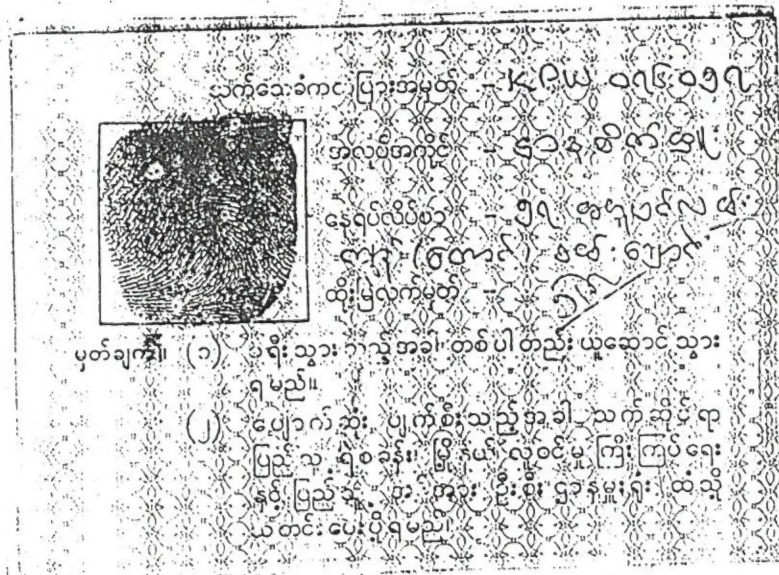 သက်သေခံကဒ်ပြားအမှတ် - KPW ၀၇၆၀၅၇
အလုပ်အကိုင် -
နေရပ်လိပ်စာ - ၅၇
ထိုးမြဲလက်မှတ် -
မှတ်ချက်။ (၁) ခရီးသွားသည့်အခါ တစ်ပါတည်းယူဆောင်သွား
ရမည်။
(၂) ပျောက်ဆုံး၊ ပျက်စီးသည့်အခါ သက်ဆိုင်ရာ
ပြည်သူ့ရဲစခန်း၊ မြို့နယ် လူဝင်မှုကြီးကြပ်ရေး
နှင့် ပြည်သူ့ အင်အား ဦးစီးဌာနမှူးရုံး ထံသို့
သတင်းပေးပို့ရမည်။